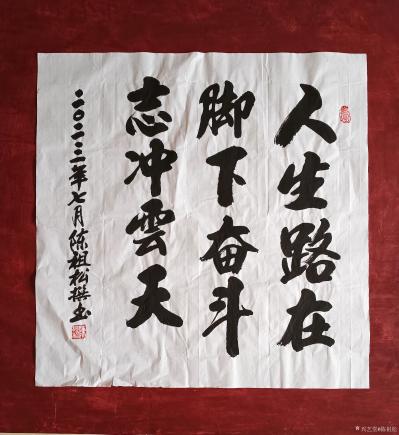 人生路在
脚下奋斗
志冲雲天
二〇二三年七月陈祖松撰书